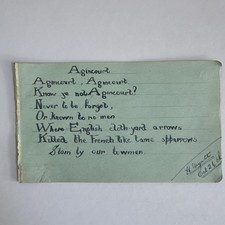 Agincourt
Agincourt, Agincourt
Know ye not Agincourt?
Never to be forgot,
Or known to no men
Where English cloth-yard arrows
Killed the French like tame sparrows
Slain by our bowmen.